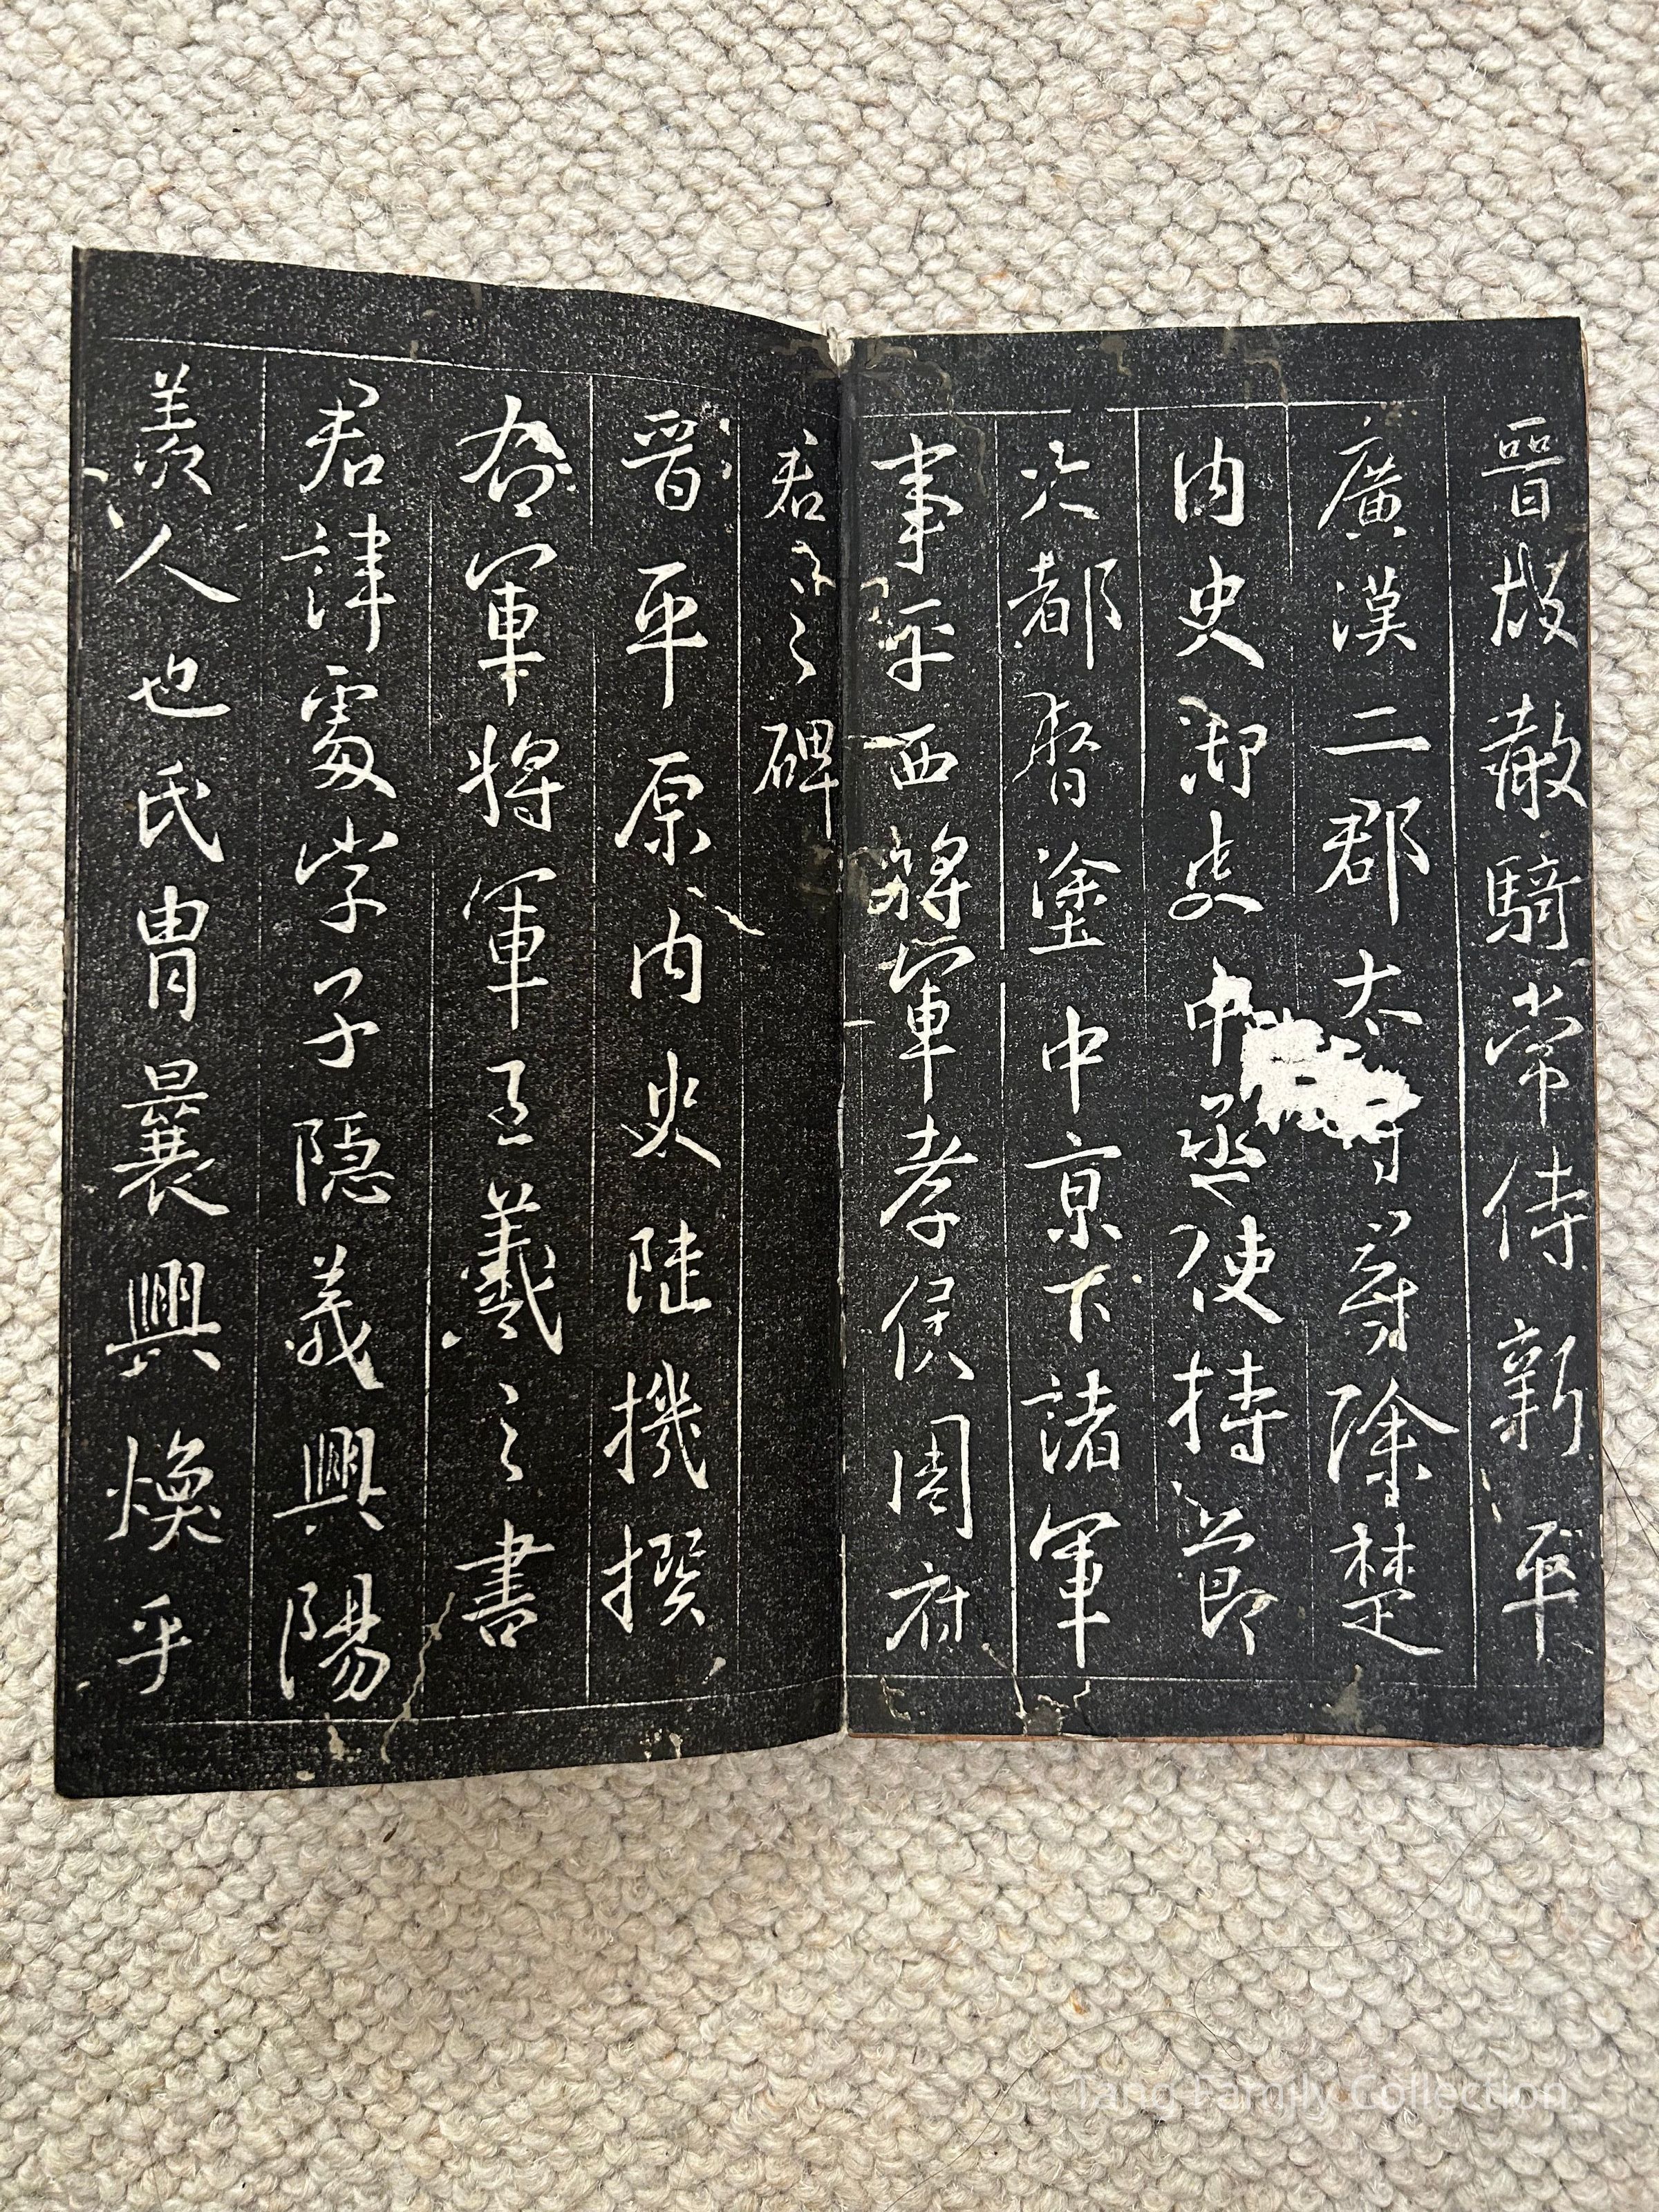 晉故散騎常侍新平
廣漢二郡太守尋除楚
內史御史中丞使持節
大都督塗中京下諸軍
事平西將軍孝侯周府
君之碑
晉平原內史陸機撰
右軍將軍王羲之書
君諱處字子隱義興陽
羨人也氏冑曩興煥乎
Tang Family Collection